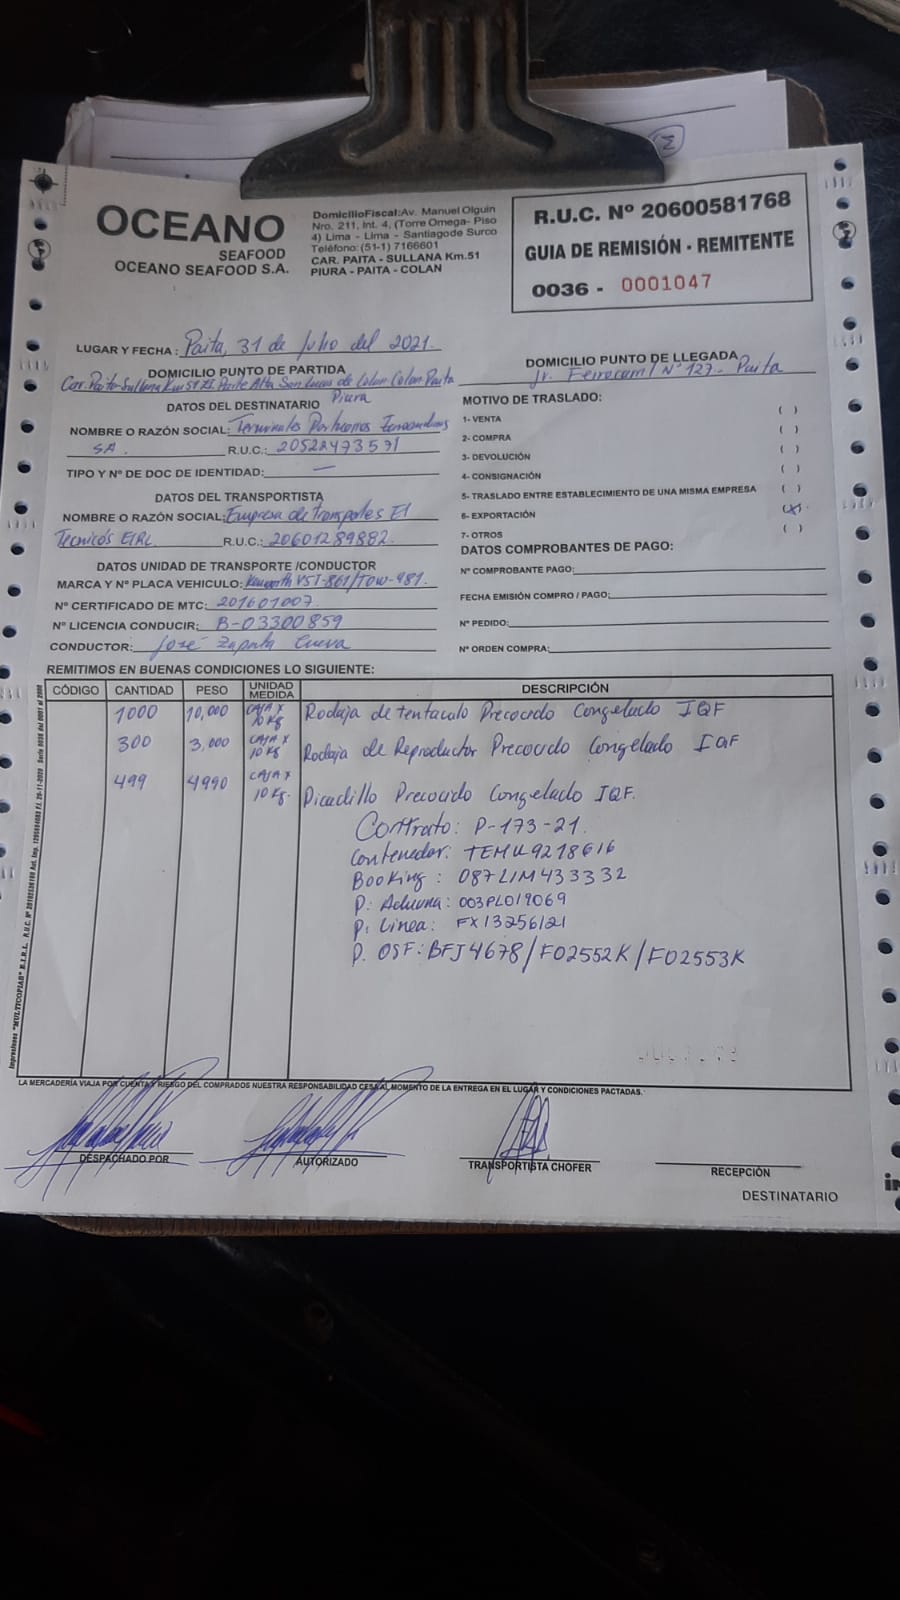 OCEANO
SEAFOOD
OCEANO SEAFOOD S.A.
DomicilioFiscal:Av. Manuel Olguin
Nro. 211, Int. 4, (Torre Omega- Piso
4) Lima - Lima - Santiagode Surco
Teléfono: (51-1) 7166601
CAR. PAITA - SULLANA Km.51
PIURA - PAITA - COLAN
R.U.C. Nº 20600581768
GUIA DE REMISIÓN - REMITENTE
0036 - 0001047
LUGAR Y FECHA : Paita, 31 de Julio del 2021.
DOMICILIO PUNTO DE PARTIDA
Car. Paita-Sullana Km 51 Parte Alta San Lucas de Colan Colan Paita
Piura
DOMICILIO PUNTO DE LLEGADA
Jr. Ferrocarril Nº 127 - Paita
DATOS DEL DESTINATARIO
NOMBRE O RAZÓN SOCIAL: Terminales Portuarios Euroandinos
SA. R.U.C.: 20522473571
TIPO Y Nº DE DOC DE IDENTIDAD: —
DATOS DEL TRANSPORTISTA
NOMBRE O RAZÓN SOCIAL: Empresa de transportes El
Tecnicos EIRL R.U.C.: 20601289882.
DATOS UNIDAD DE TRANSPORTE /CONDUCTOR
MARCA Y Nº PLACA VEHICULO: Kenworth VST-861/TOW-981.
Nº CERTIFICADO DE MTC: 201601007.
Nº LICENCIA CONDUCIR: B-03300859
CONDUCTOR: José Zapata Cueva
MOTIVO DE TRASLADO:
1- VENTA ( )
2- COMPRA ( )
3- DEVOLUCIÓN ( )
4- CONSIGNACIÓN ( )
5- TRASLADO ENTRE ESTABLECIMIENTO DE UNA MISMA EMPRESA ( )
6- EXPORTACIÓN (X)
7- OTROS ( )
DATOS COMPROBANTES DE PAGO:
Nº COMPROBANTE PAGO:
FECHA EMISIÓN COMPRO / PAGO:
Nº PEDIDO:
Nº ORDEN COMPRA:
REMITIMOS EN BUENAS CONDICIONES LO SIGUIENTE:
CÓDIGO CANTIDAD PESO UNIDAD MEDIDA DESCRIPCIÓN
1000 10,000 CAJA X 10 Kg Rodaja de tentaculo Precocido Congelado IQF
300 3,000 CAJA X 10 Kg Rodaja de Reproductor Precocido Congelado IQF
499 4990 CAJA X 10 Kg. Picadillo Precocido Congelado IQF.
Contrato: P-173-21.
Contenedor: TEMU9218616
Booking : 087LIM433332
P. Aduana: 003PL019069
P. Linea: FX13256121
P. OSF: BFJ4678/FO2552K/FO2553K
LA MERCADERÍA VIAJA POR CUENTA Y RIESGO DEL COMPRADOS NUESTRA RESPONSABILIDAD CESA AL MOMENTO DE LA ENTREGA EN EL LUGAR Y CONDICIONES PACTADAS.
DESPACHADO POR
AUTORIZADO
TRANSPORTISTA CHOFER
RECEPCIÓN
DESTINATARIO